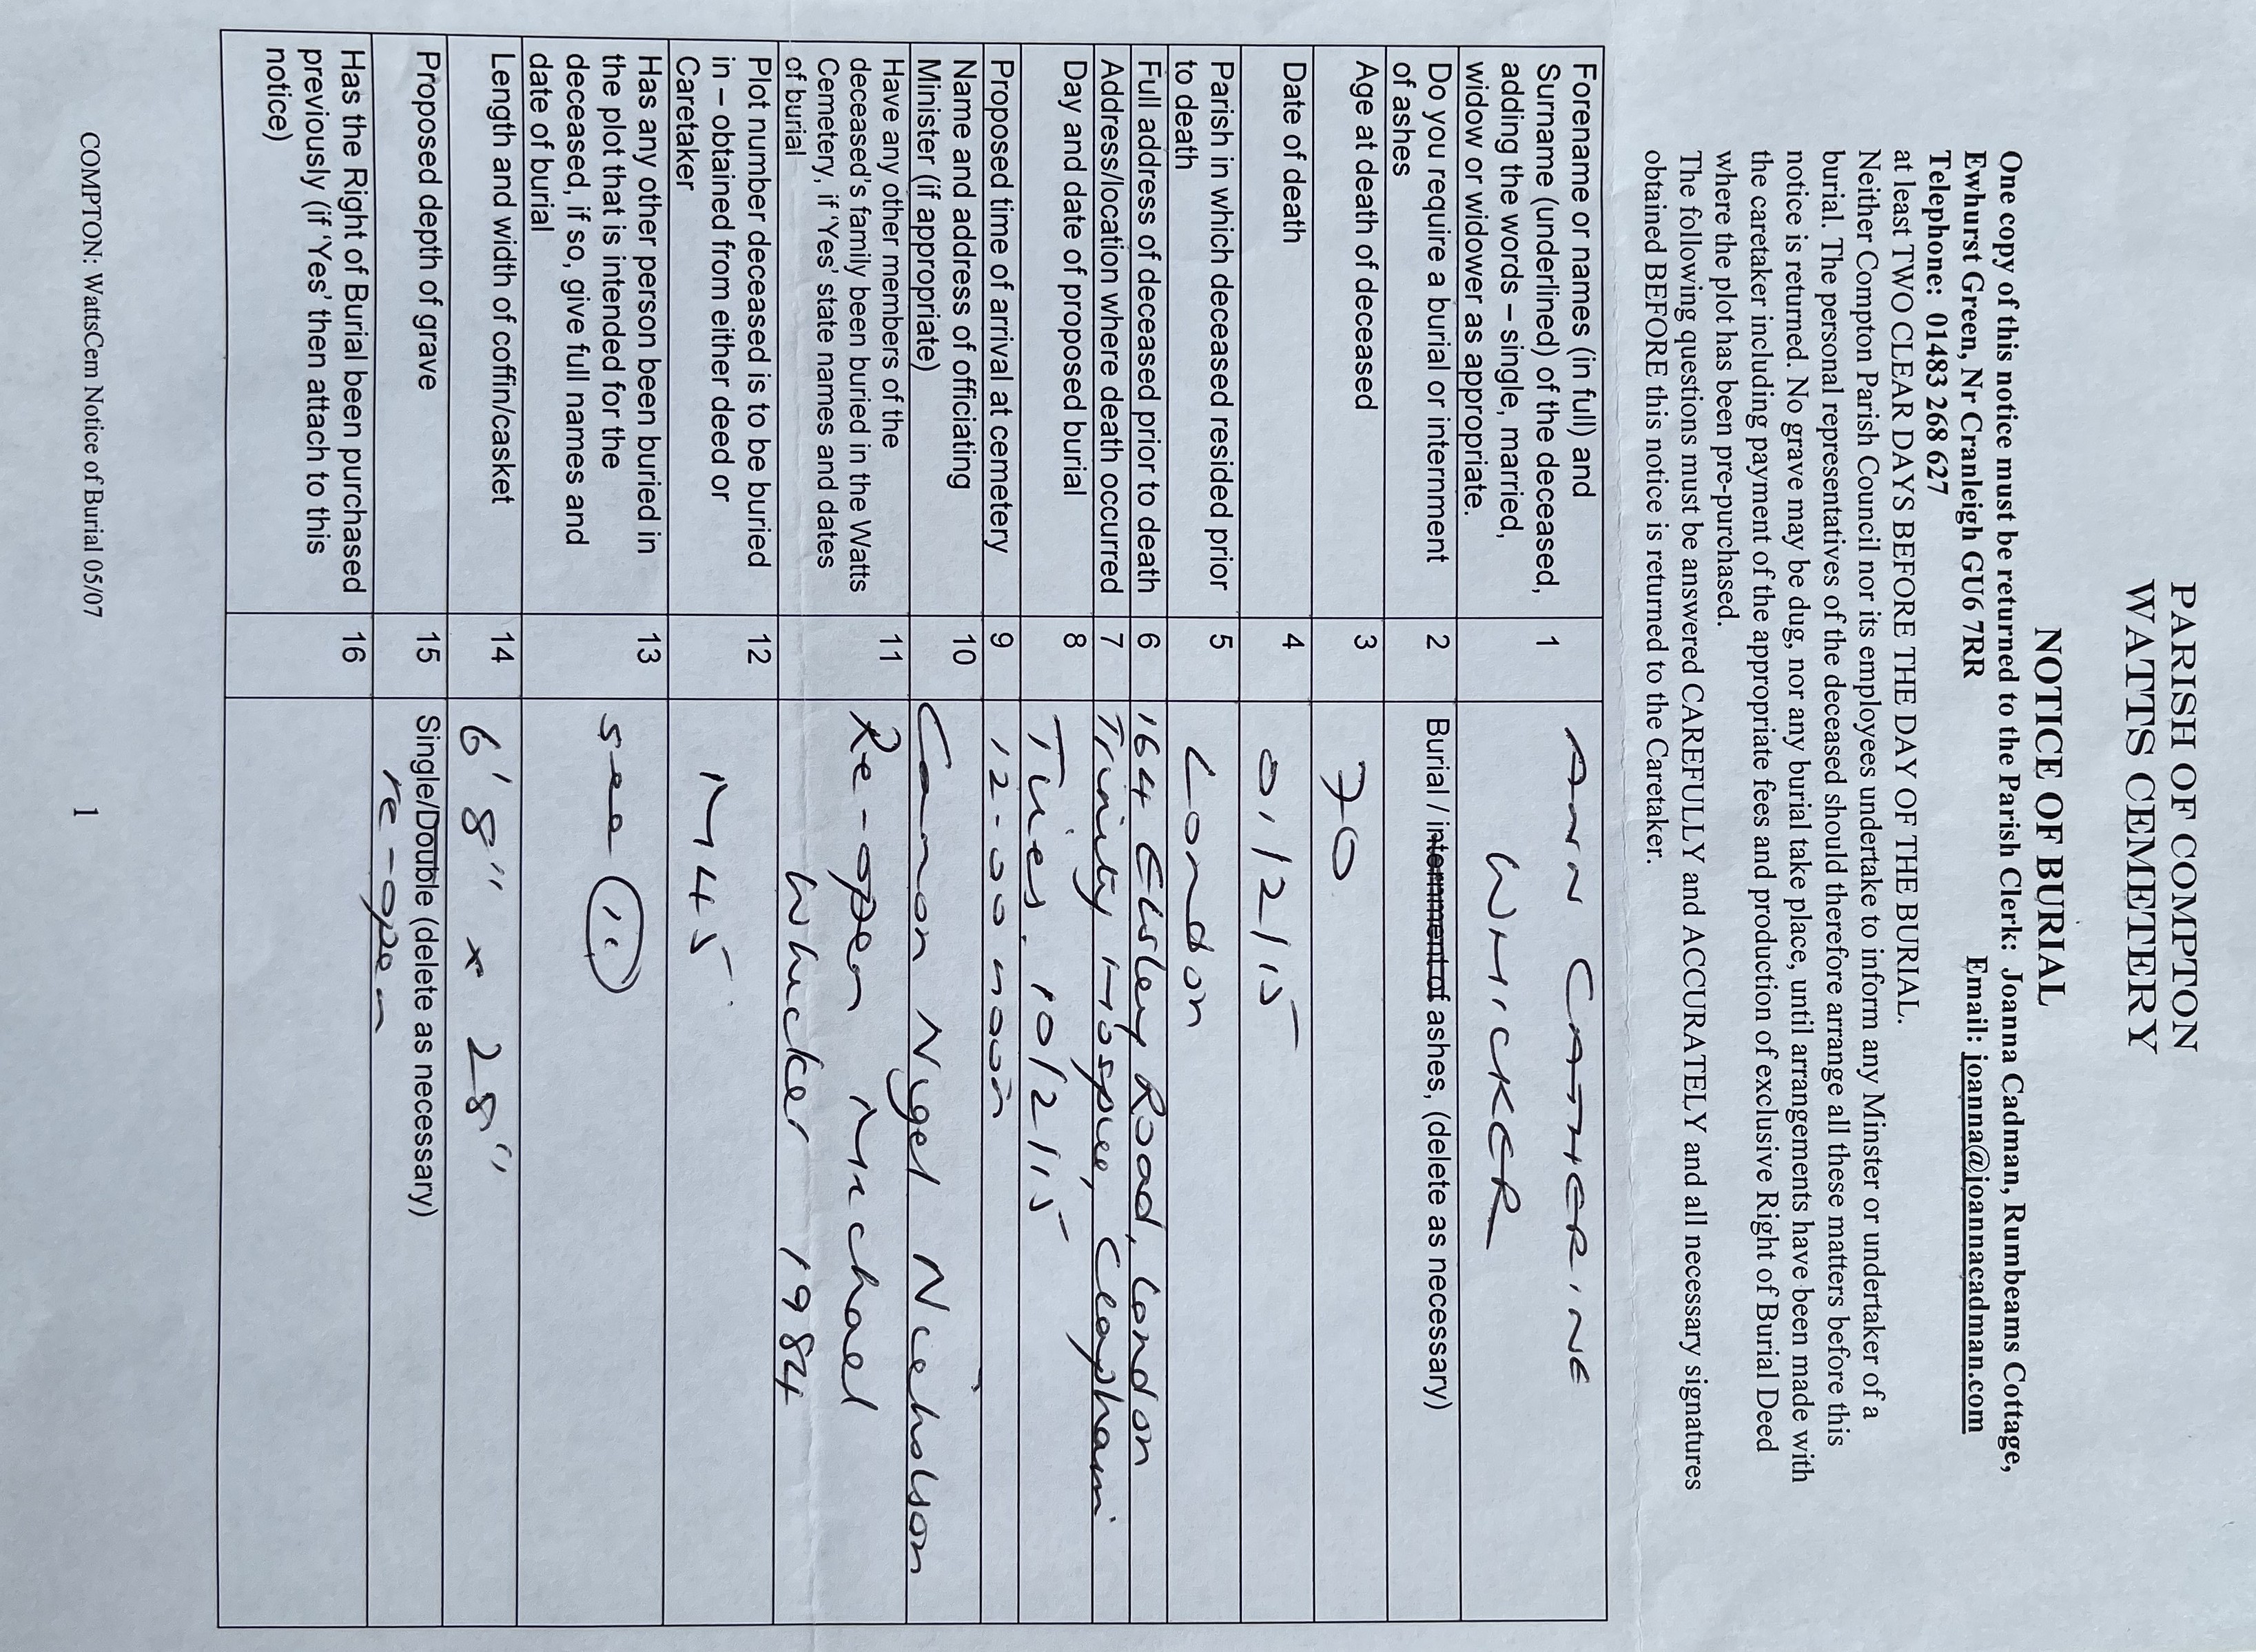 PARISH OF COMPTON
WATTS CEMETERY
NOTICE OF BURIAL
One copy of this notice must be returned to the Parish Clerk: Joanna Cadman, Rumbeams Cottage,
Ewhurst Green, Nr Cranleigh GU6 7RR Email: joanna@joannacadman.com
Telephone: 01483 268 627
at least TWO CLEAR DAYS BEFORE THE DAY OF THE BURIAL.
Neither Compton Parish Council nor its employees undertake to inform any Minster or undertaker of a
burial. The personal representatives of the deceased should therefore arrange all these matters before this
notice is returned. No grave may be dug, nor any burial take place, until arrangements have been made with
the caretaker including payment of the appropriate fees and production of exclusive Right of Burial Deed
where the plot has been pre-purchased.
The following questions must be answered CAREFULLY and ACCURATELY and all necessary signatures
obtained BEFORE this notice is returned to the Caretaker.
Forename or names (in full) and
Surname (underlined) of the deceased,
adding the words – single, married,
widow or widower as appropriate.
1
ANN CATHERINE
WHICKER
Do you require a burial or internment
of ashes
2
Burial / internment of ashes, (delete as necessary)
Age at death of deceased
3
70
Date of death
4
01/2/15
Parish in which deceased resided prior
to death
5
London
Full address of deceased prior to death
6
164 Elsley Road, London
Address/location where death occurred
7
Trinity Hospice, Clapham
Day and date of proposed burial
8
Tues. 10/2/15
Proposed time of arrival at cemetery
9
12-00 noon
Name and address of officiating
Minister (if appropriate)
10
Canon Nigel Nicholson
Have any other members of the
deceased's family been buried in the Watts
Cemetery, if 'Yes' state names and dates
of burial
11
Re-open Michael
Whicker 1984
Plot number deceased is to be buried
in – obtained from either deed or
Caretaker
12
M45
Has any other person been buried in
the plot that is intended for the
deceased, if so, give full names and
date of burial
13
see 11
Length and width of coffin/casket
14
6'8" x 28"
Proposed depth of grave
15
Single/Double (delete as necessary)
re-open
Has the Right of Burial been purchased
previously (if 'Yes' then attach to this
notice)
16
COMPTON: WattsCem Notice of Burial 05/07
1